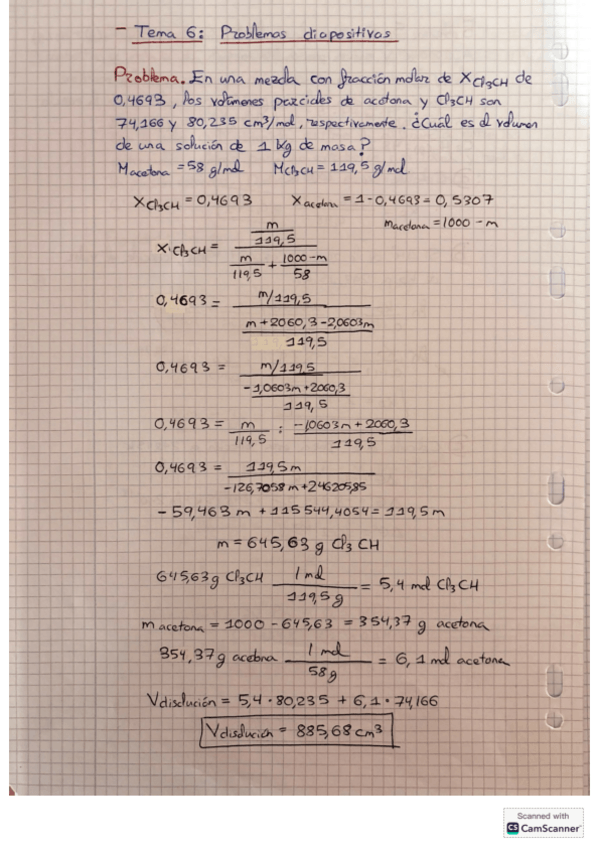 - Tema 6: Problemas diapositivas
Problema. En una mezcla con fracción molar de XCl3CH de
0,4693, los volúmenes parciales de acetona y Cl3CH son
74,166 y 80,235 cm³/mol, respectivamente. ¿Cuál es el volumen
de una solución de 1 kg de masa?
Macetona = 58 g/mol MCl3CH = 119,5 g/mol
XCl3CH = 0,4693 Xacetona = 1 - 0,4693 = 0,5307
macetona = 1000 - m
XCl3CH = (m/119,5) / (m/119,5 + (1000-m)/58)
0,4693 = (m/119,5) / ((m + 2060,3 - 2,0603m)/119,5)
0,4693 = (m/119,5) / ((-1,0603m + 2060,3)/119,5)
0,4693 = m/119,5 : (-1,0603m + 2060,3)/119,5
0,4693 = 119,5m / (-126,7058m + 246205,85)
- 59,463m + 115544,4054 = 119,5m
m = 645,63 g Cl3CH
645,63g Cl3CH 1 mol/119,5g = 5,4 mol Cl3CH
macetona = 1000 - 645,63 = 354,37 g acetona
354,37g acetona 1 mol/58g = 6,1 mol acetona
Vdisolución = 5,4 · 80,235 + 6,1 · 74,166
Vdisolución = 885,68 cm³
Scanned with
CS CamScanner